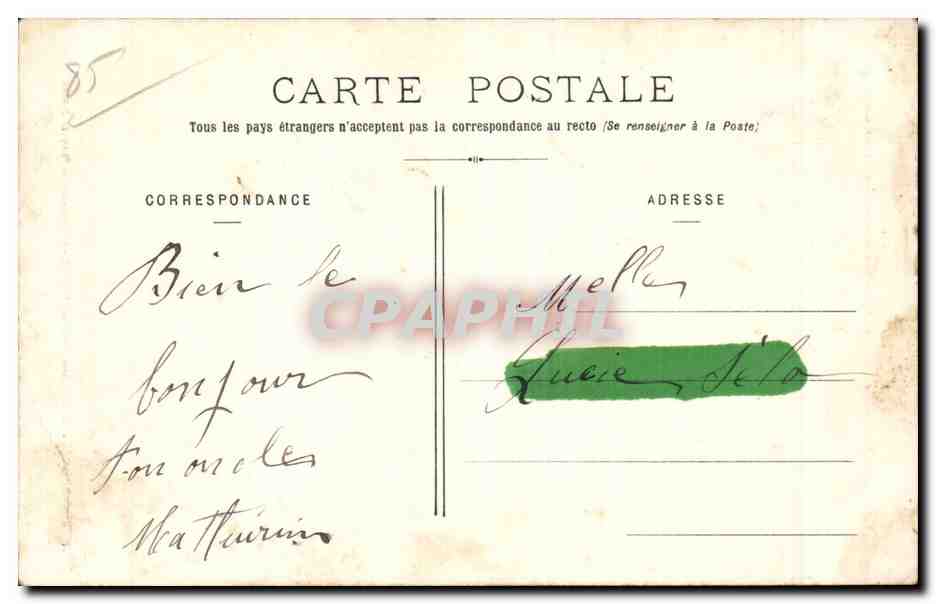 85
CARTE POSTALE
Tous les pays étrangers n'acceptent pas la correspondance au recto (Se renseigner à la Poste)
CORRESPONDANCE
Bien le
bonjour
ton oncle
Mathurin
ADRESSE
Melle
Lucie Sélo
CPAPHIL